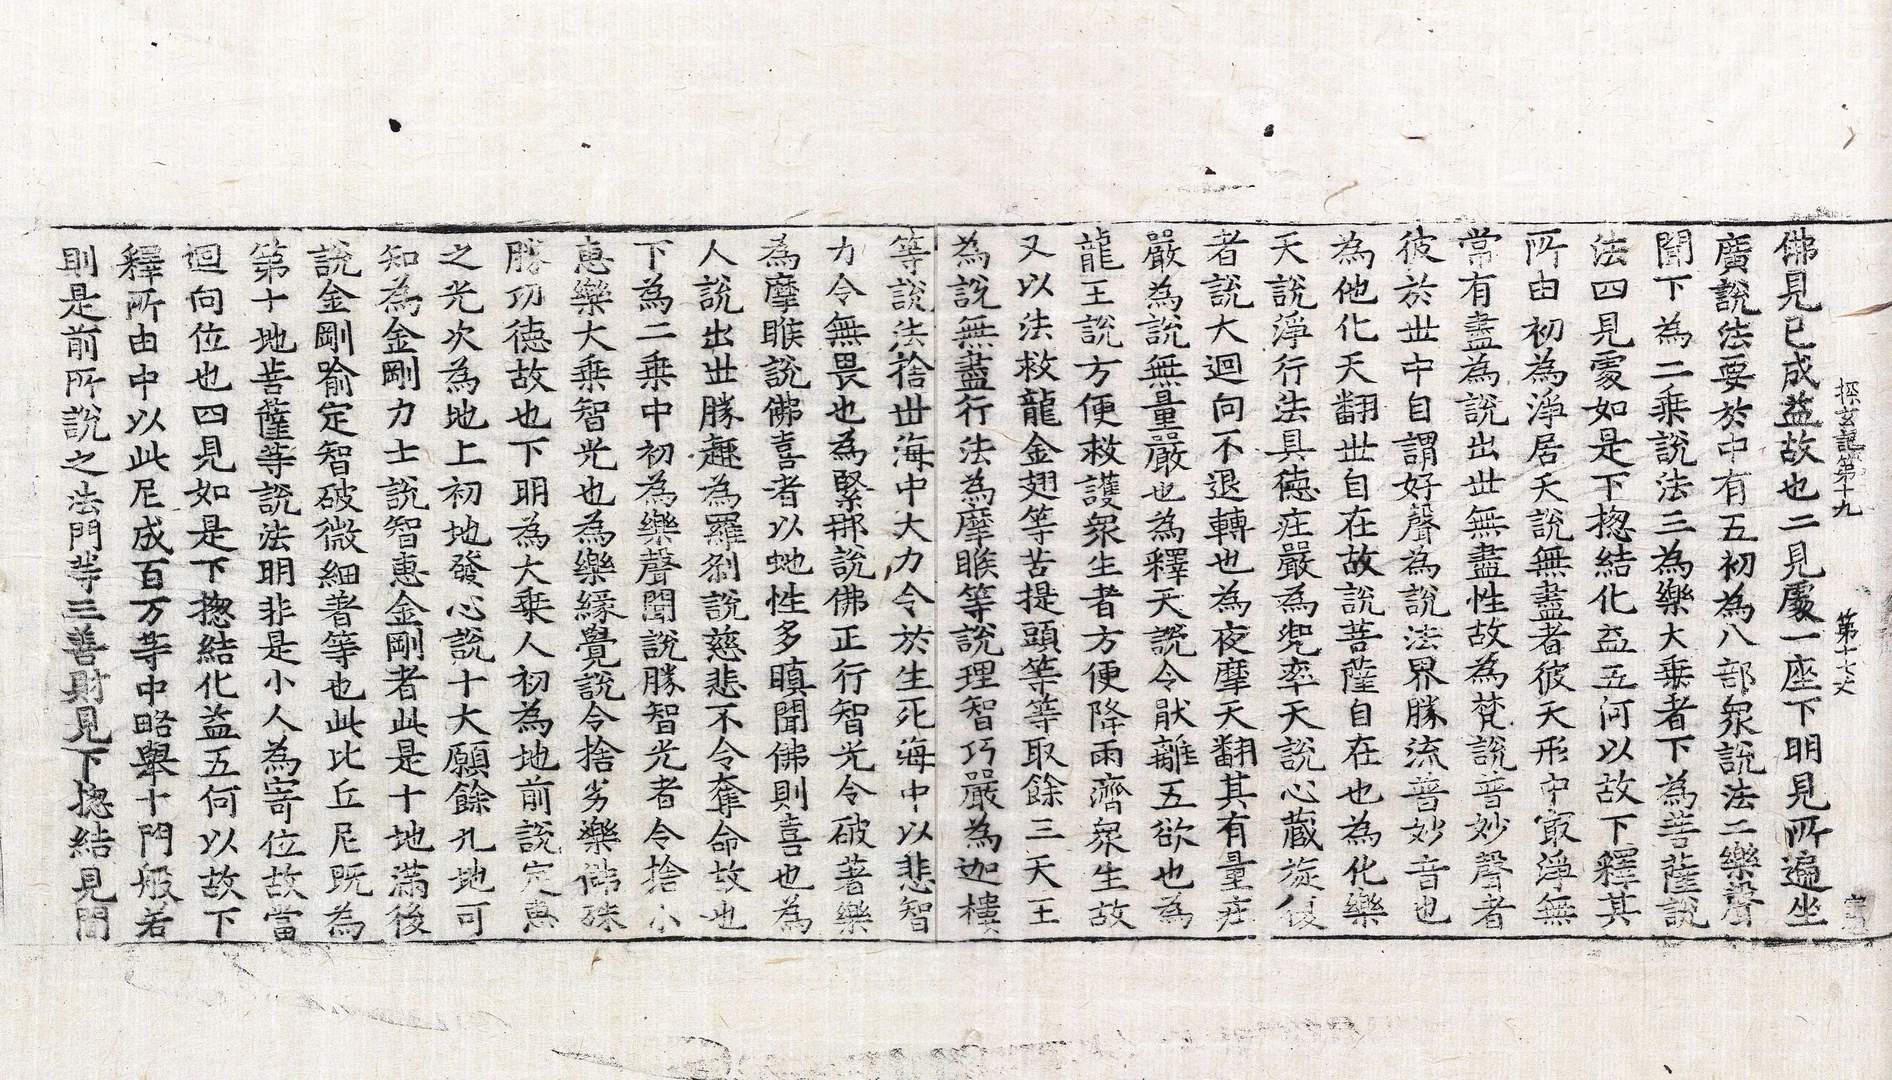 探玄記第十九　第十七丈
佛見已成益故也二見處一座下明見所遍坐
廣說法要於中有五初為八部衆說法二樂聲
聞下為二乗說法三為樂大乗者下為菩薩說
法四見處如是下揔結化益五何以故下釋其
所由初為淨居天說無盡者彼天形中冣淨無
常有盡為說出世無盡性故為梵說普妙聲者
彼於世中自謂好聲為說法界勝流普妙音也
為他化天翻世自在故說菩薩自在也為化樂
天說淨行法具德庄嚴為兠率天說心藏旋復
者說大迴向不退轉也為夜摩天翻其有量庄
嚴為說無量嚴也為釋天說令猒離五欲也為
龍王說方便救護衆生者方便降雨濟衆生故
又以法救龍金翅等苦提頭等等取餘三天王
為說無盡行法為摩睺等說理智巧嚴為迦樓
等說法捨世海中大力令於生死海中以悲智
力令無畏也為緊那說佛正行智光令破著樂
為摩睺說佛喜者以虵性多瞋聞佛則喜也為
人說出世勝趣為羅剎說慈悲不令奪命故也
下為二乗中初為樂聲聞說勝智光者令捨小
恵樂大乗智光也為樂緣覺說令捨劣樂佛殊
勝功德故也下明為大乗人初為地前說定恵
之光次為地上初地發心說十大願餘九地可
知為金剛力士說智恵金剛者此是十地滿後
說金剛喻定智破微細著等也此比丘尼既為
第十地菩薩等說法明非是小人為寄位故當
迴向位也四見如是下揔結化益五何以故下
釋所由中以此尼成百万等中略舉十門般若
則是前所說之法門等三善財見下揔結見聞